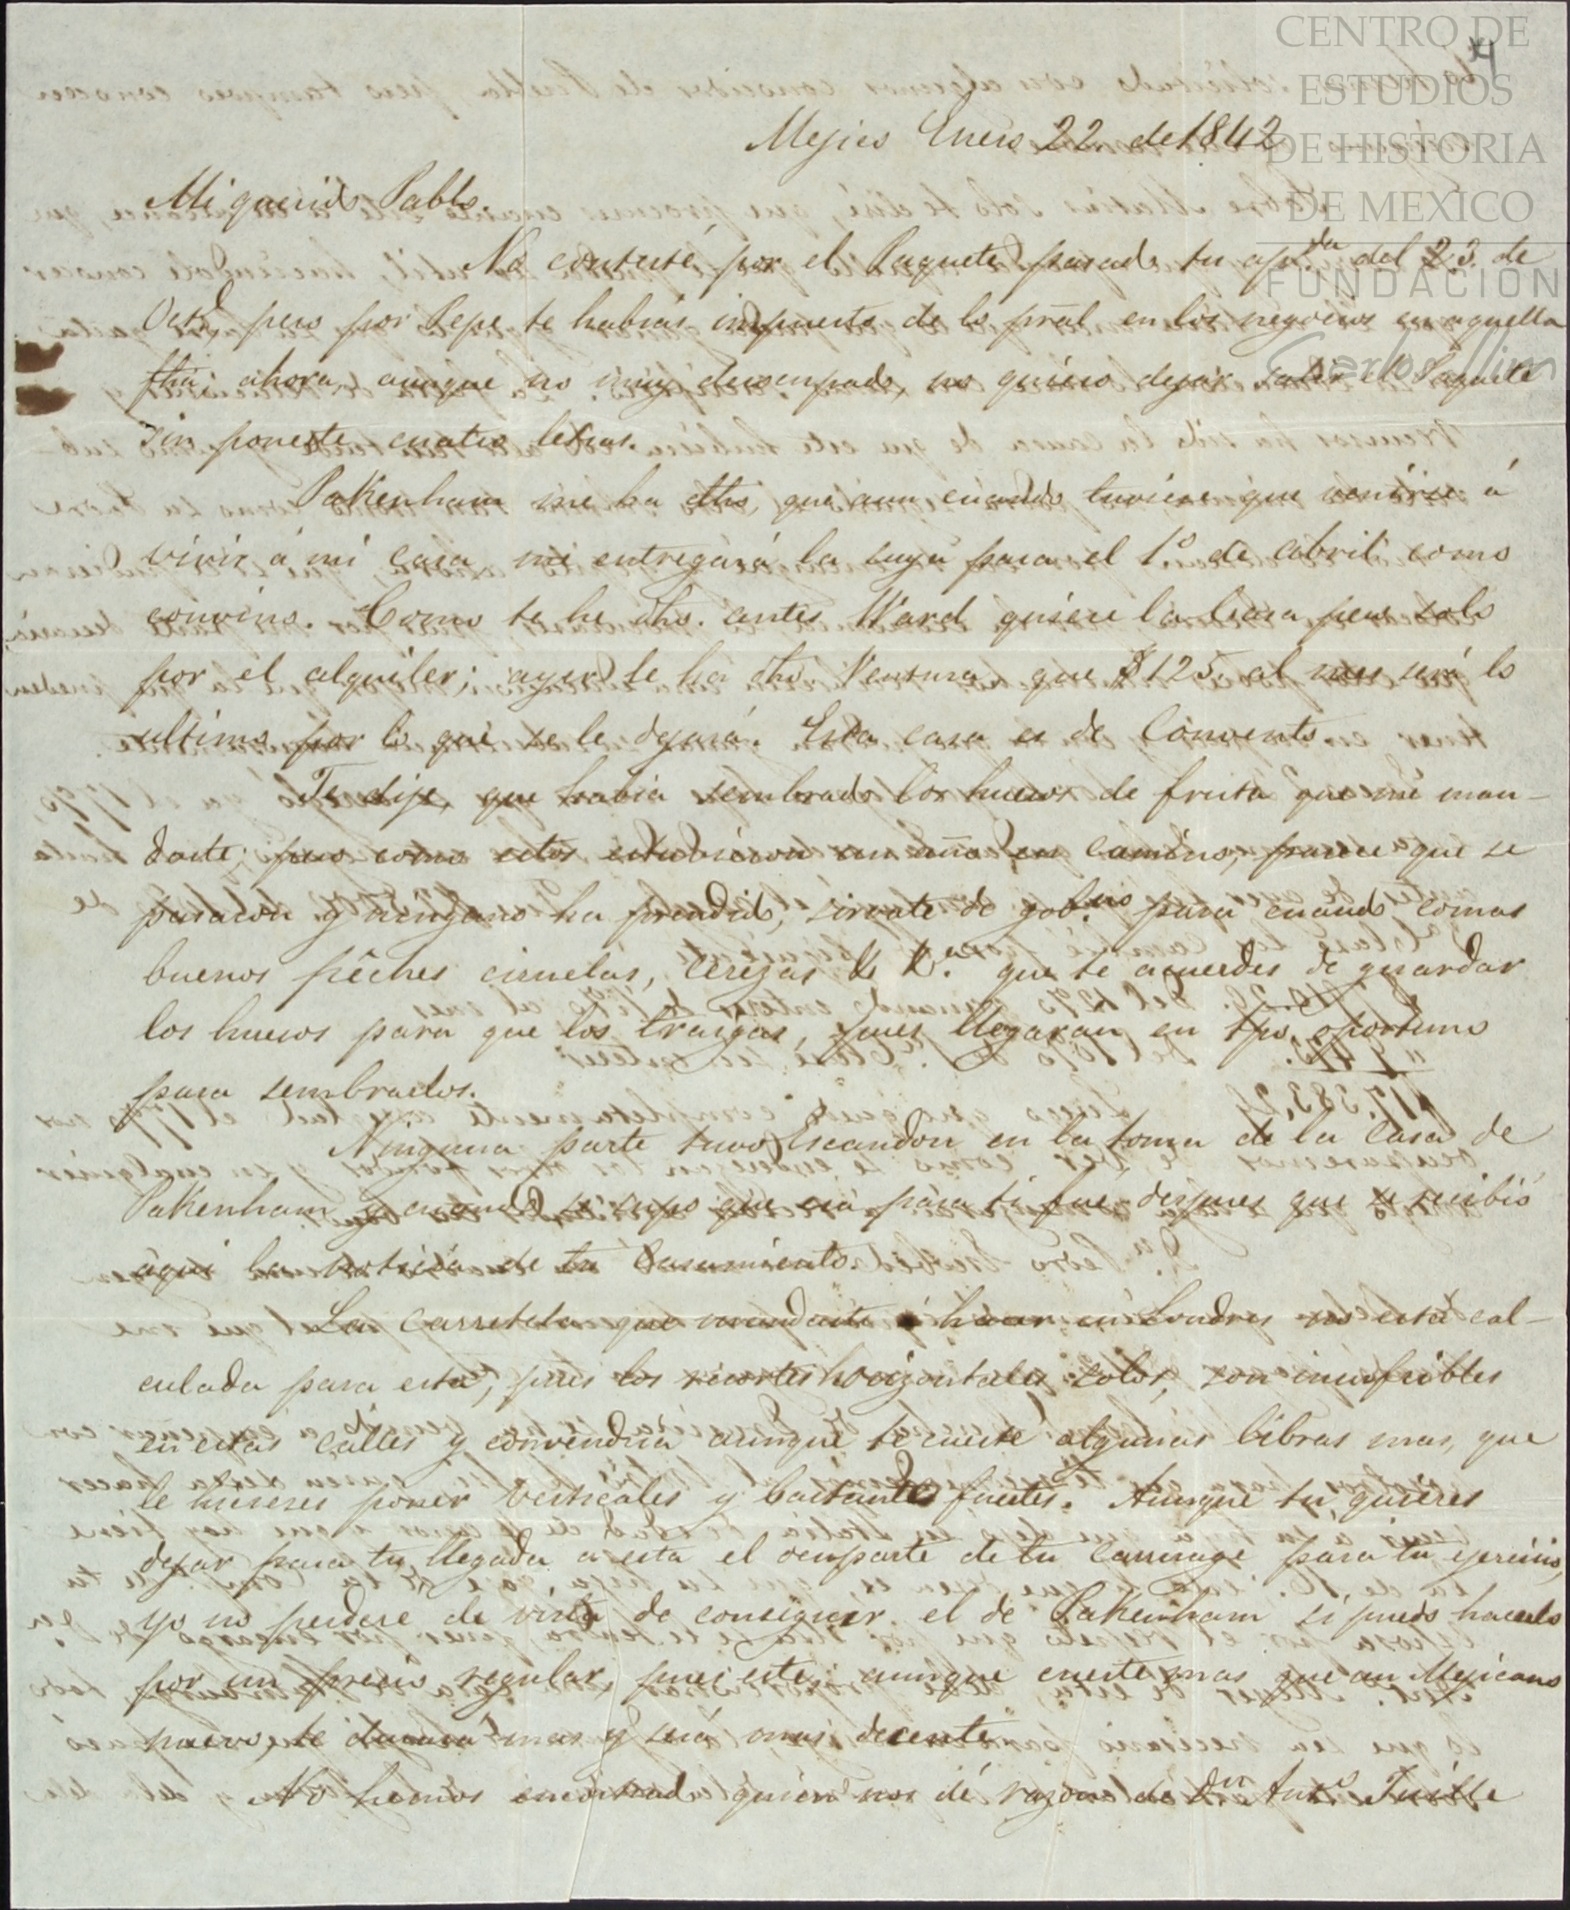 CENTRO DE
ESTUDIOS
DE HISTORIA
DE MEXICO
FUNDACION
Carlos Slim
4
Mejico Enero 22. de 1842
Mi querido Pablo.
No contesté por el Paquete pasado tu apda. del 23. de
Octe. pero por Pepe te habrás impuesto de lo pral en los negocios en aquella
fha; ahora, aunque no muy desocupado, no quiero dejar salir el Paquete
sin ponerte cuatro letras.
Pakenham me ha dho, que aun cuando tuviese que venirse á
vivir á mi casa me entregará la suya para el 1º. de abril como
convino. Como te he dho. antes Ward quiere la Casa pero solo
por el alquiler; ayer le ha dho. Ventura que $125. al mes será lo
ultimo por lo que se le dejará. Esta casa es de Convento.
Te dije, que habia sembrado los huesos de fruta que me man-
daste; pero como estos estubieron un año en camino, parece que se
pasaron y ninguno ha prendido, sirvate de gobno para cuando comas
buenos pêches ciruelas, cerezas &. &a. que te acuerdes de guardar
los huesos para que los traigas, pues llegaran en tpo. oportuno
para sembrarlos.
Ninguna parte tuvo Escandon en la toma de la Casa de
Pakenham y cuando se supo que era para ti fue despues que se recibió
aqui la noticia de tu Casamiento.
La carretela que mandaste á hacer en Londres no está cal-
culada para esta, pues los resortes horizontales solos, son insufribles
en estas calles y convendria aunque te cueste algunas libras mas, que
le hicieses poner verticales y bastante fuertes. Aunque tu quieres
dejar para tu llegada a esta el ocuparte de tu carruage para tu ejercicio,
yo no perdere de vista de conseguir el de Pakenham si puedo hacerlo
por un precio regular, pues este, aunque cueste mas que un Mejicano
nuevo, te durará mas y será mas decente.
No hemos encontrado quien nos dé razon de Dn. Anto.